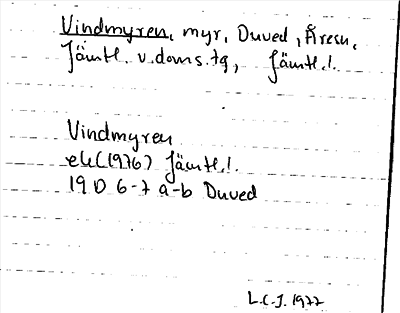 Vindmyren, myr, Duved, Åresn,
Jämtl. v. doms.tg, Jämtl.l.
Vindmyren
ek (1976) Jämtl.l.
19 D 6-7 a-b Duved
L.C-J. 1977